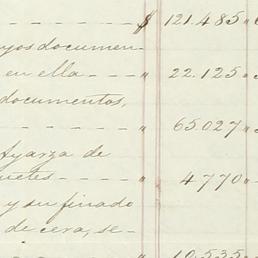 $ 121.485 "
yos documen-
en ella - - - " 22.125 "
documentos,
- - - - - " 65.027 "
Ayarza de
quetes - - - " 4770 "
y su finado
de cera, se-
- - - - - " 10.535 "